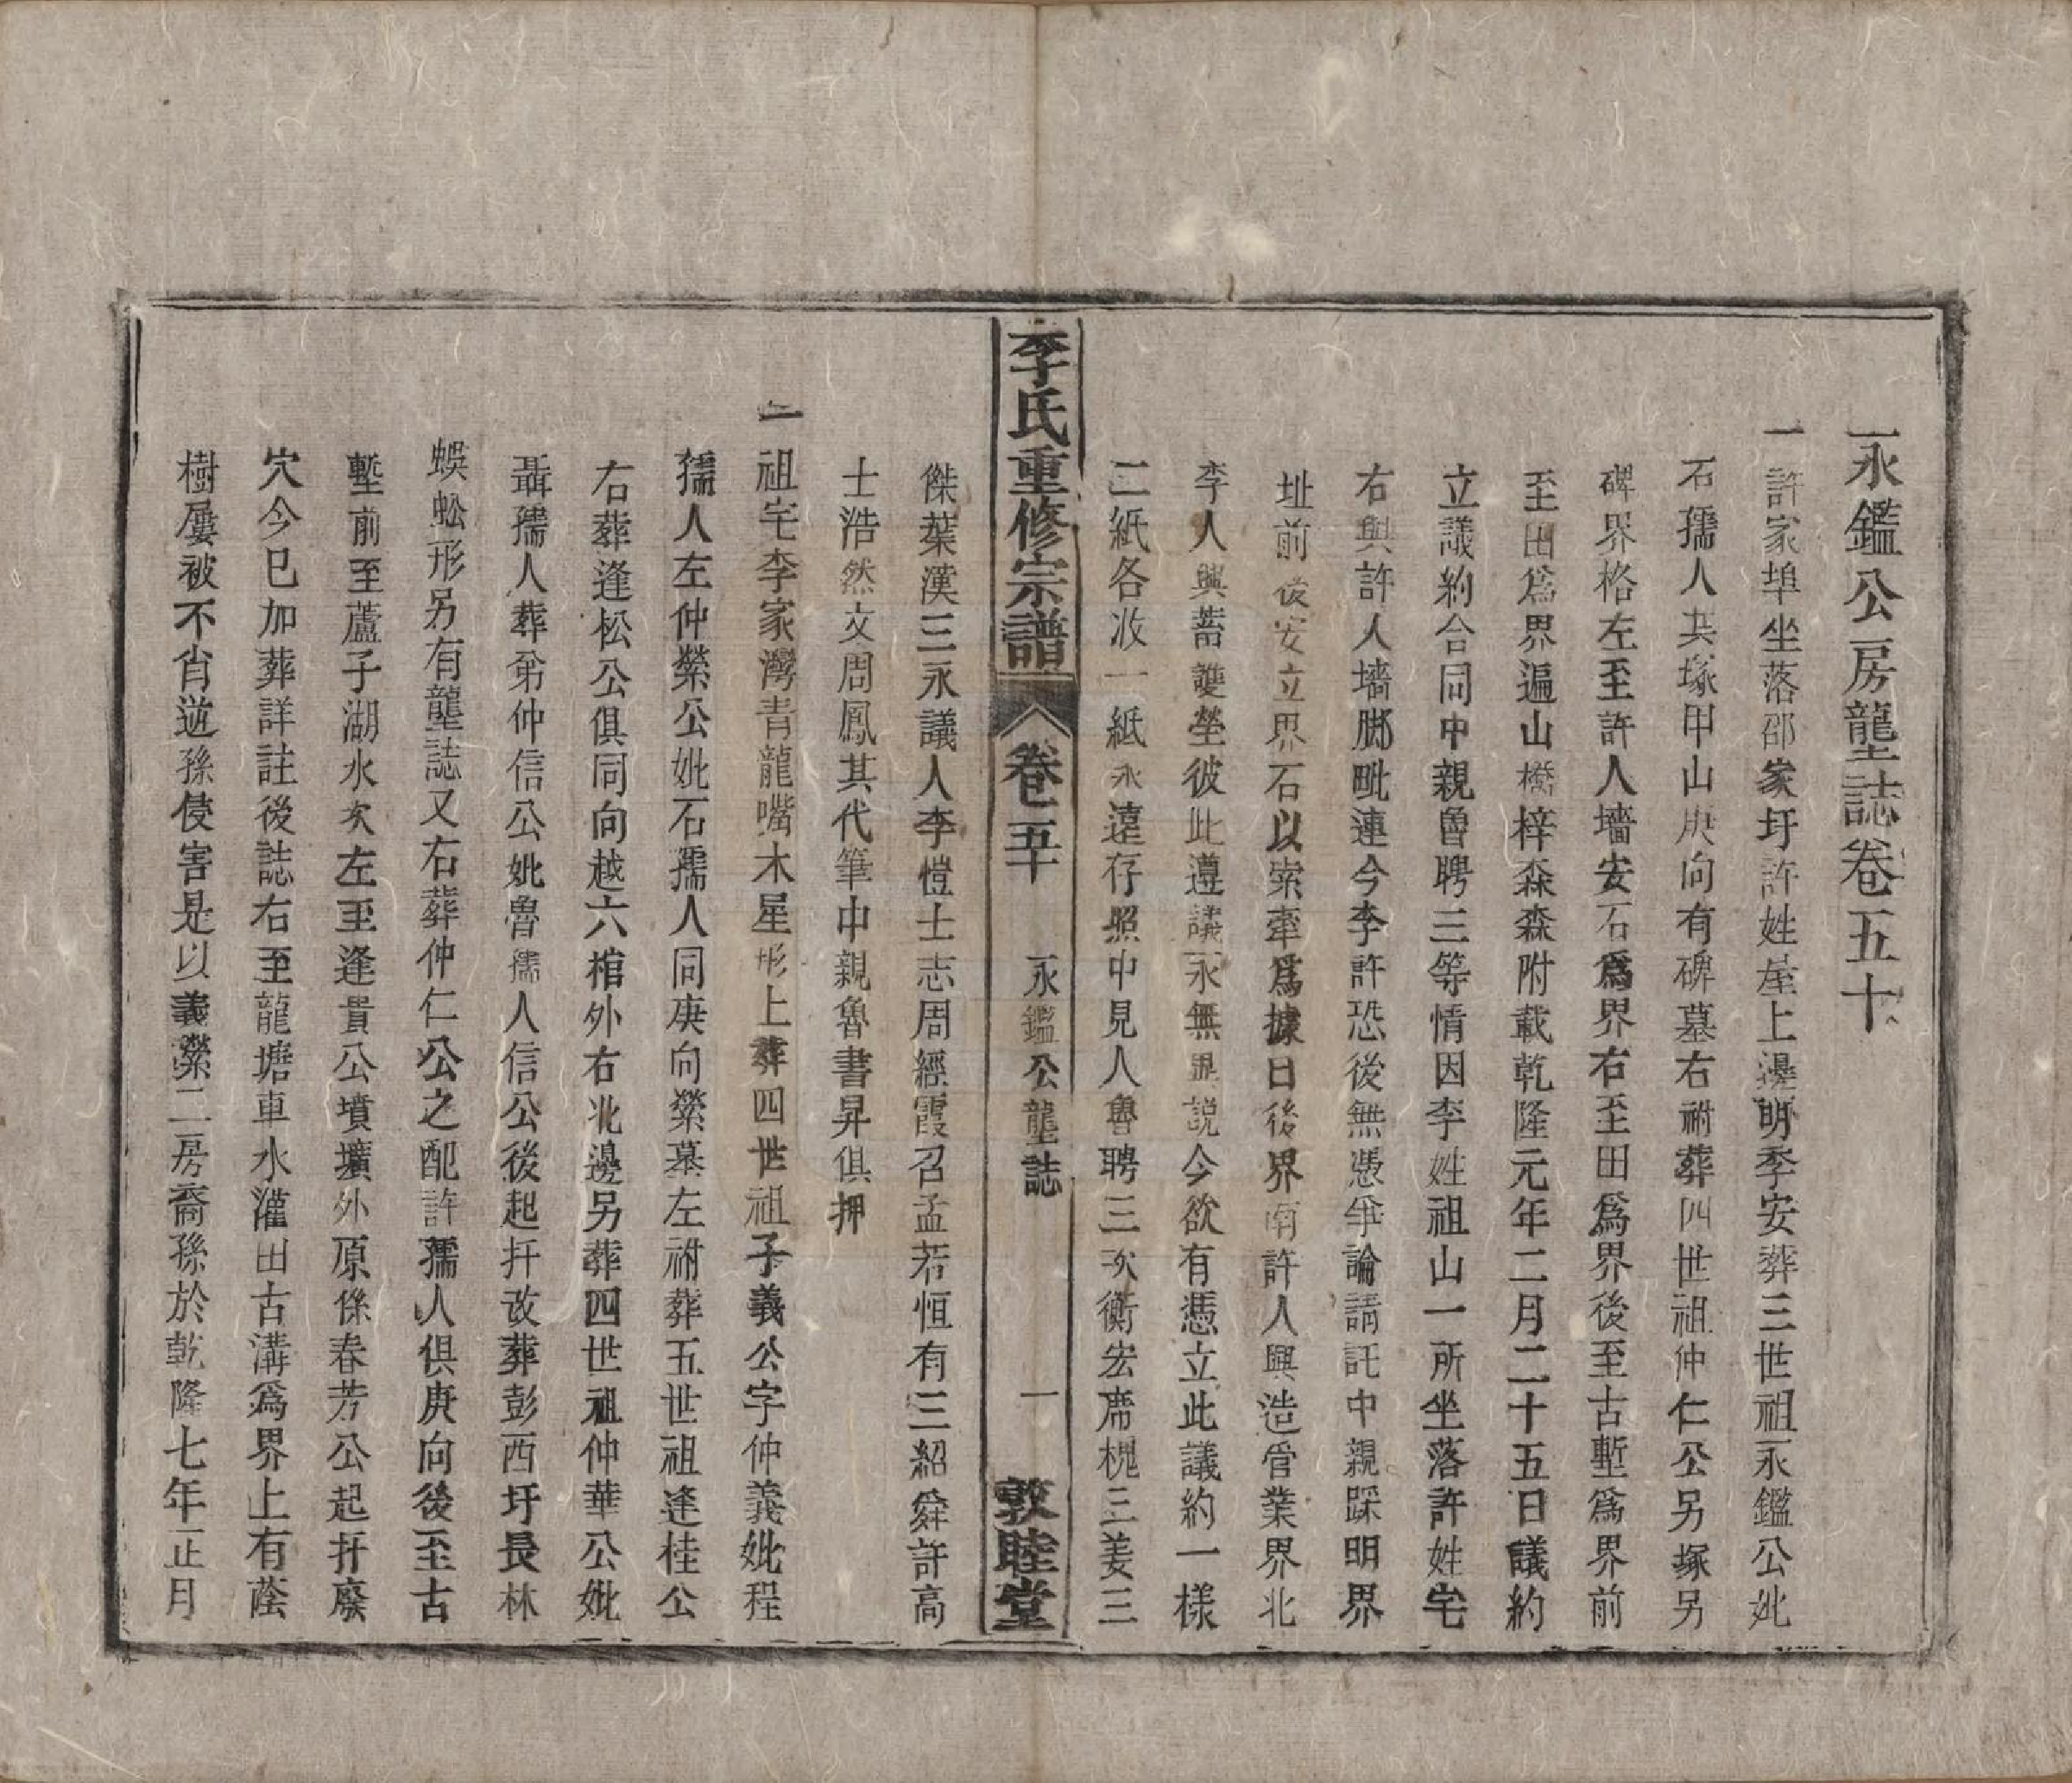 永鑑公房壟誌卷五十
一許家埠坐落邵家圩許姓屋上邊明季安葬三世祖永鑑公妣
石孺人共塚甲山庚向有碑墓右祔葬四世祖仲仁公另塚另
碑界格左至許人墻安石爲界右至田爲界後至古塹爲界前
至田爲界遍山橙梓森森附載乾隆元年二月二十五日議約
立議約合同中親魯聘三等情因李姓祖山一所坐落許姓宅
右與許人墻腳毗連今李許恐後無憑爭論請託中親踩明界
址前後安立界石以索牽爲據日後界南許人興造管業界北
李人興蓄護塋彼此遵議永無異說今欲有憑立此議約一樣
二紙各收一紙永遠存照中見人魯聘三次衡宏席槐三姜三
李氏重修宗譜
卷五十
永鑑公壟誌
一
敦睦堂
傑葉漢三永議人李愷士志周經霞召孟若恒有三紹舜許高
士浩然文周鳳其代筆中親魯書昇俱押
一祖宅李家灣青龍嘴木星形上葬四世祖子義公字仲義妣程
孺人左仲縈公妣石孺人同庚向縈墓左祔葬五世祖逢桂公
右葬逢松公俱同向越六棺外右北邊另葬四世祖仲華公妣
聶孺人葬弟仲信公妣魯孺人信公後起扦改葬彭西圩長林
蜈蚣形另有壟誌又右葬仲仁公之配許孺人俱庚向後至古
塹前至蘆子湖水次左至逢貴公墳壙外原係春芳公起扦廢
穴今已加葬詳註後誌右至龍塘車水灌田古溝爲界上有蔭
樹屢被不肖逆孫侵害是以義縈二房裔孫於乾隆七年正月